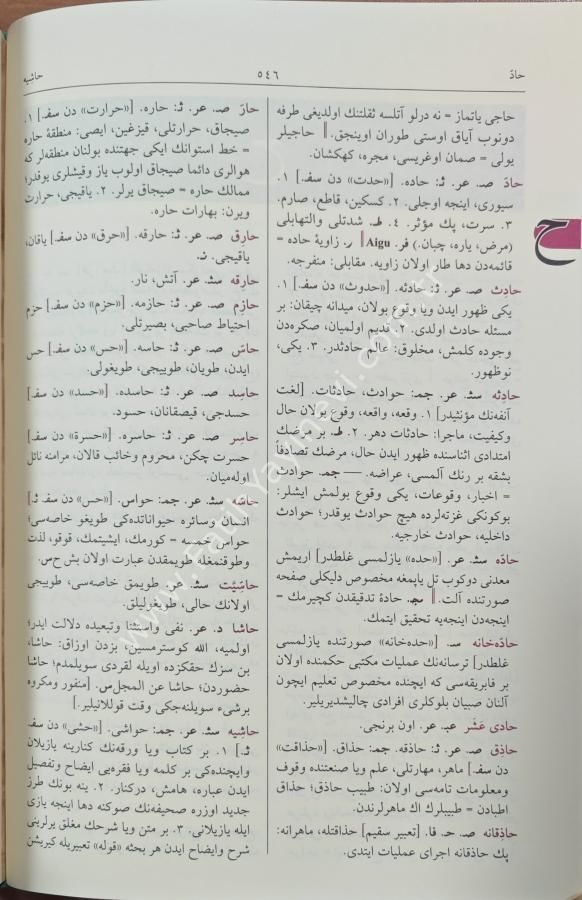 حادّ
٥٤٦
حاشيه
حاجى ياتماز = نه درلو آتلسه ثقلتنك اولديغى طرفه
دونوب آياق اوستى طوران اوينجق. ‖ حاجيلر
يولى = صمان اوغريسى، مجره، كهكشان.
حادّ صـ. عر. ثـ: حاده. [«حدت» دن سفـ] ١.
سيورى، اينجه اوجلى. ٢. كسكين، قاطع، صارم.
٣. سرت، پك مؤثر. ٤. طـ. شدتلى والتهابلى
(مرض، ياره، چبان.) فر. Aigu ‖ ر. زاويۀ حاده =
قائمه‌دن دها طار اولان زاويه. مقابلى: منفرجه.
حادِث صـ. عر. ثـ: حادثه. [«حدوث» دن سفـ] ١.
يكى ظهور ايدن ويا وقوع بولان، ميدانه چيقان: بر
مسئله حادث اولدى. ٢. قديم اولميان، صكره‌دن
وجوده كلمش، مخلوق: عالم حادثدر. ٣. يكى،
نوظهور.
حادِثه سثـ. عر. جمـ: حوادث، حادثات. [لغت
آنفه‌نك مؤنثيدر] ١. وقعه، واقعه، وقوع بولان حال
وكيفيت، ماجرا: حادثات دهر. ٢. طـ. بر مرضك
امتدادى اثناسنده ظهور ايدن حال، مرضك تصادفاً
بشقه بر رنك آلمسى، عراضه. — جمـ. حوادث
= اخبار، وقوعات، يكى وقوع بولمش ايشلر:
بوكونكى غزته‌لرده هيچ حوادث يوقدر؛ حوادث
داخليه، حوادث خارجيه.
حادّه سثـ. عر. [«حده» يازلمسى غلطدر] اريمش
معدنى دوكوب تل ياپمغه مخصوص دليكلى صفحه
صورتنده آلت. ‖ مجـ. حادۀ تدقيقدن كچيرمك =
اينجه‌دن اينجه‌يه تحقيق ايتمك.
حادّه‌خانه سـ. [«حده‌خانه» صورتنده يازلمسى
غلطدر] ترسانه‌نك عمليات مكتبى حكمنده اولان
بر فابريقه‌سى كه ايچنده مخصوص تعليم ايچون
آلنان صبيان بلوكلرى افرادى چاليشديريلير.
حادى عَشَر عبـ. عر. اون برنجى.
حاذِق صـ. عر. ثـ: حاذقه. جمـ: حذاق. [«حذاقت»
دن سفـ] ماهر، مهارتلى، علم ويا صنعتنده وقوف
ومعلومات تامه‌سى اولان: طبيب حاذق؛ حذاق
اطبادن = طبيبلرك اك ماهرلرندن.
حاذِقانه صـ. حـ. فا. [تعبير سقيم] حذاقتله، ماهرانه:
پك حاذقانه اجراى عمليات ايتدى.
حارّ صـ. عر. ثـ: حاره. [«حرارت» دن سفـ] ١.
صيجاق، حرارتلى، قيزغين، ايصى: منطقۀ حاره
= خط استوانك ايكى جهتنده بولنان منطقه‌لر كه
هوالرى دائما صيجاق اولوب ياز وقيشلرى يوقدر؛
ممالك حاره = صيجاق يرلر. ٢. ياقيجى، حرارت
ويرن: بهارات حاره.
حارِق صـ. عر. ثـ: حارقه. [«حرق» دن سفـ] ياقان،
ياقيجى.
حارِقه سثـ. عر. آتش، نار.
حازِم صـ. عر. ثـ: حازمه. [«حزم» دن سفـ] حزم
احتياط صاحبى، بصيرتلى.
حاسّ صـ. عر. ثـ: حاسه. [«حس» دن سفـ] حس
ايدن، طويان، طوييجى، طويغولى.
حاسِد صـ. عر. ثـ: حاسده. [«حسد» دن سفـ]
حسدجى، قيصقانان، حسود.
حاسِر صـ. عر. ثـ: حاسره. [«حسرة» دن سفـ]
حسرت چكن، محروم وخائب قالان، مرامنه نائل
اوله‌ميان.
حاسّه سثـ. عر. جمـ: حواس. [«حس» دن سفـ ثـ]
انسان وسائره حيواناتده‌كى طويغو خاصه‌سى؛
حواس خمسه = كورمك، ايشيتمك، قوقو، لذت
وطوقنمغله طويمقدن عبارت اولان بش حس.
حاسّيّت سثـ. عر. طويمق خاصه‌سى، طوييجى
اولانك حالى، طويغوليلق.
حاشا د. عر. نفى واستثنا وتبعيده دلالت ايدر؛
اولميه، الله كوسترمسين، بزدن اوزاق: حاشا،
بن سزك حقكزده اويله لقردى سويلمدم؛ حاشا
حضوردن؛ حاشا عن المجلس. [منفور ومكروه
برشىء سويلنه‌جكى وقت قوللانيلير.]
حاشِيه سثـ. عر. جمـ: حواشى. [«حشى» دن سفـ
ثـ] ١. بر كتاب ويا ورقه‌نك كنارينه يازيلان
وايچنده‌كى بر كلمه ويا فقره‌يى ايضاح وتفصيل
ايدن عباره، هامش، دركنار. ٢. ينه بونك طرز
جديد اوزره صحيفه‌نك صوكنه دها اينجه يازى
ايله يازيلانى. ٣. بر متن ويا شرحك مغلق يرلرينى
شرح وايضاح ايدن هر بحثه «قوله» تعبيريله كيريشن
ح